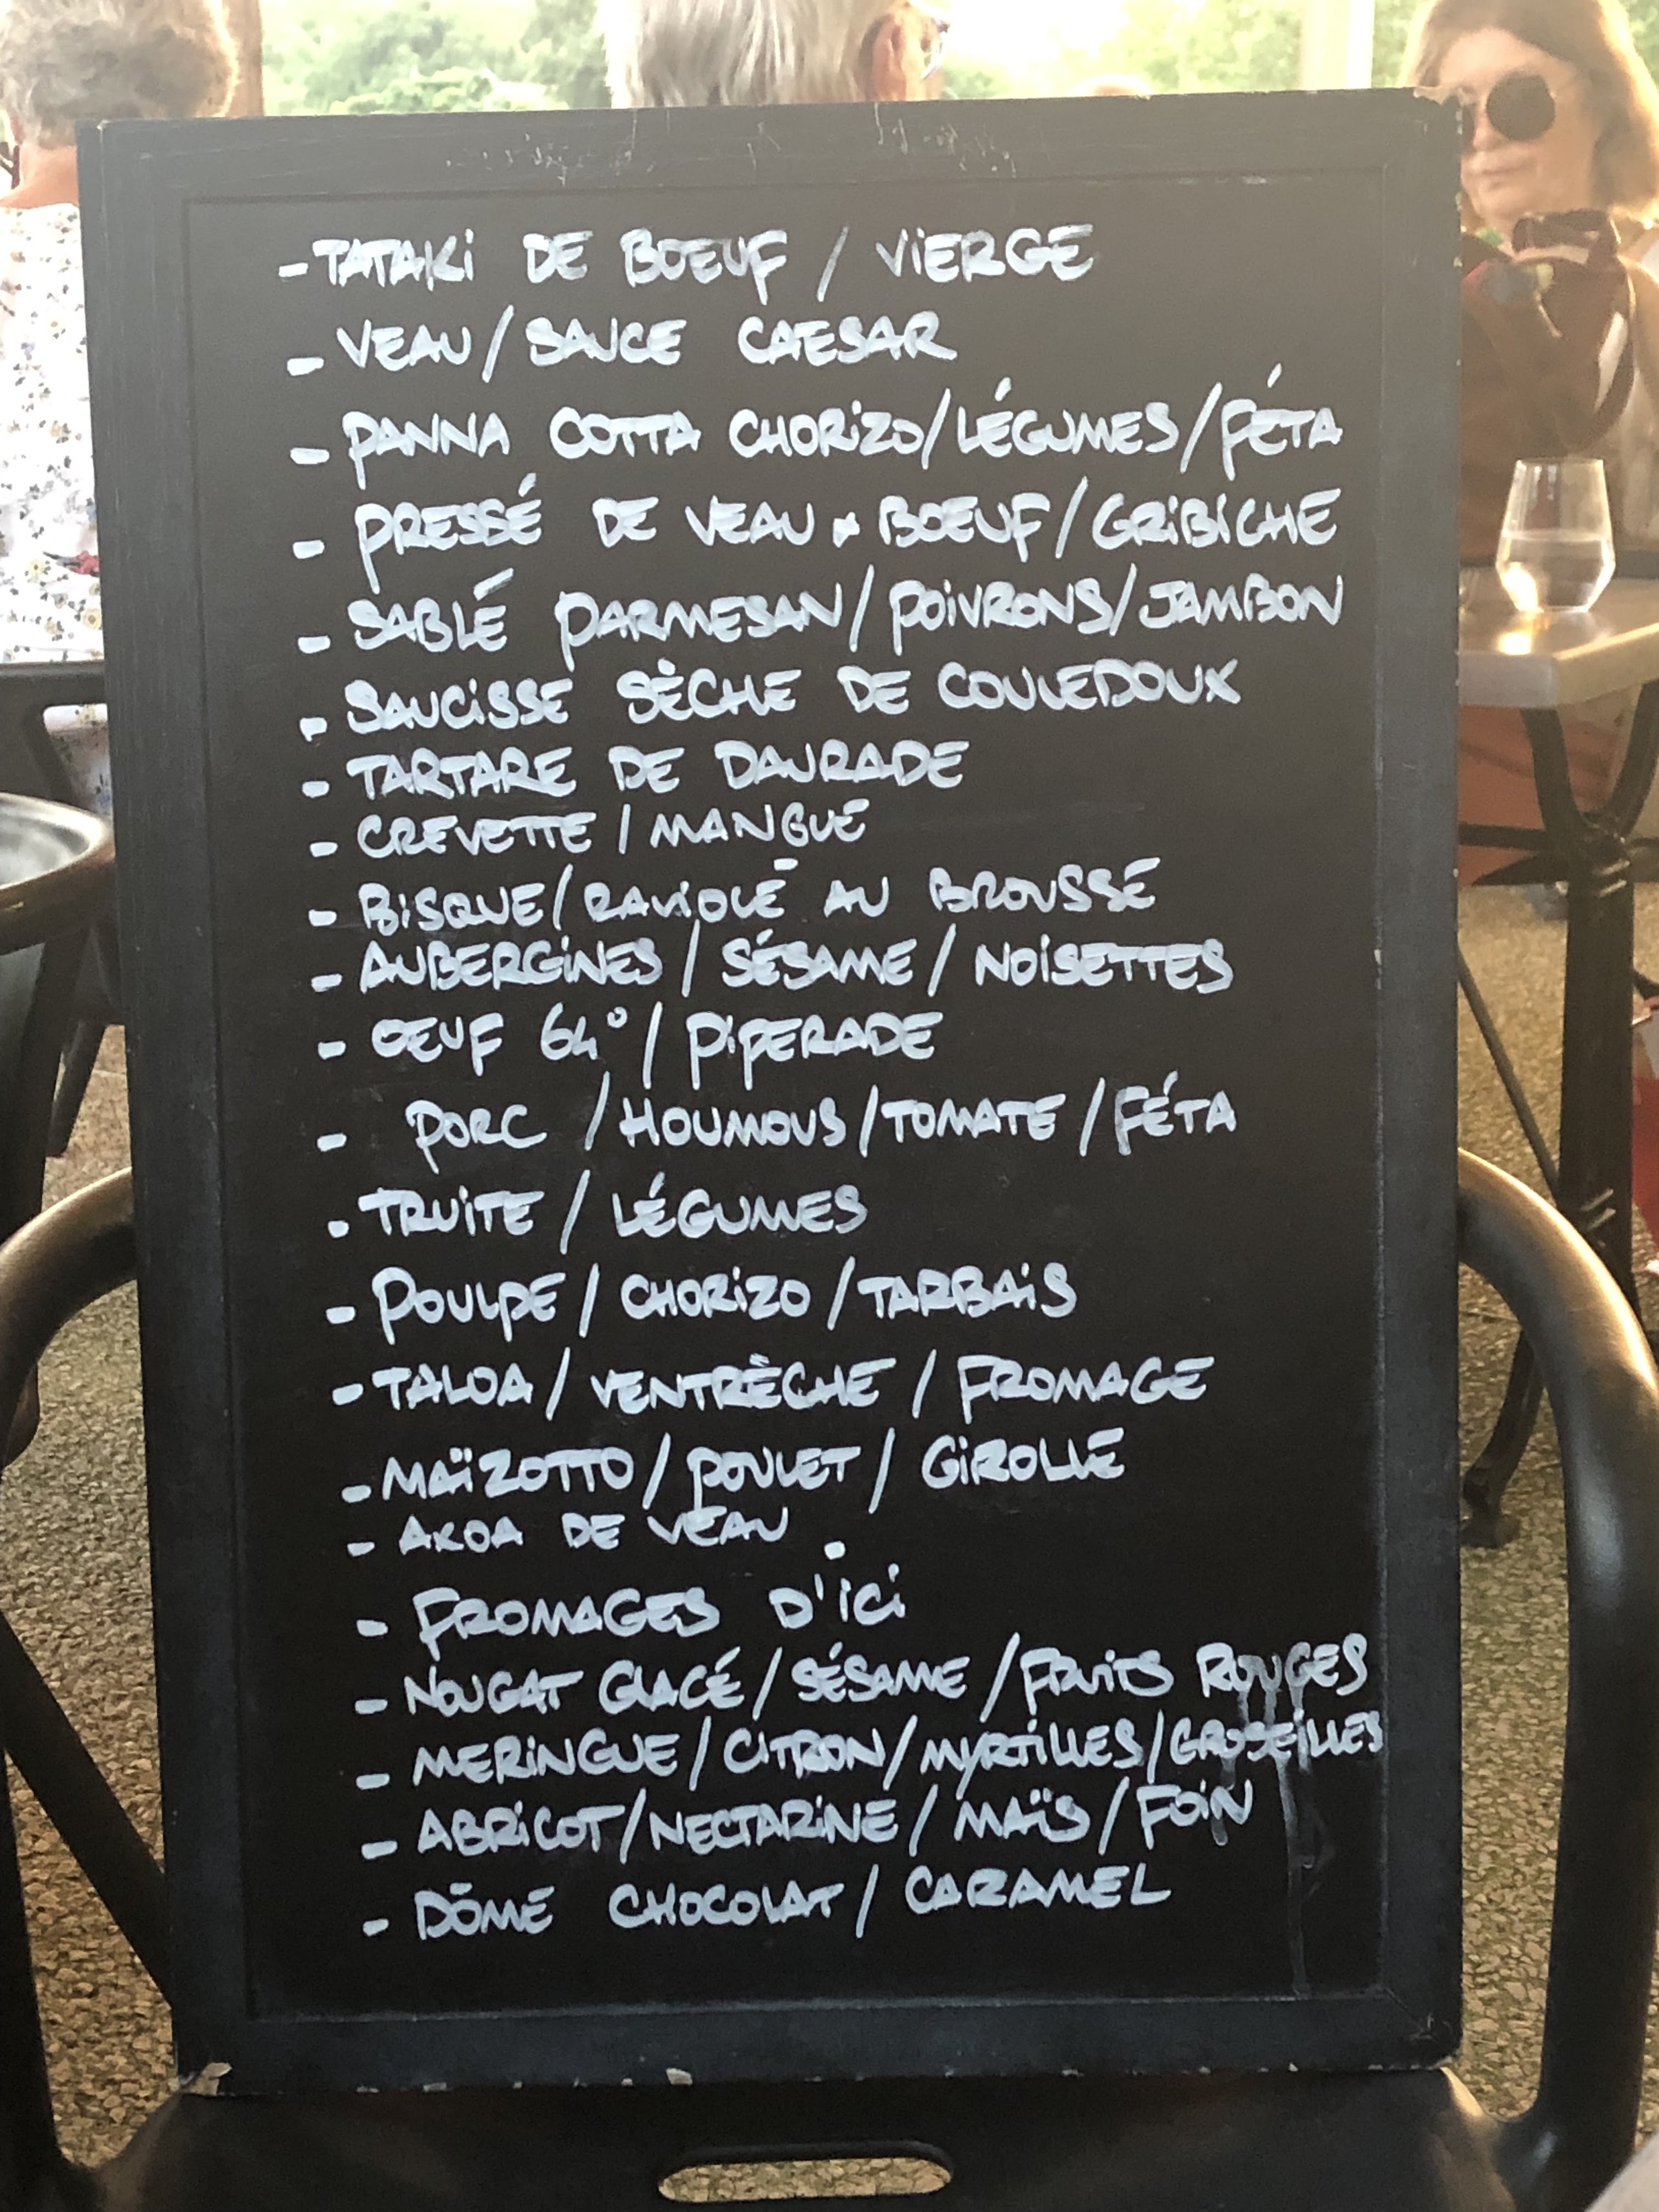 - TATAKI DE BOEUF / VIERGE
- VEAU / SAUCE CAESAR
- PANNA COTTA CHORIZO / LÉGUMES / FÉTA
- PRESSÉ DE VEAU & BOEUF / GRIBICHE
- SABLÉ PARMESAN / POIVRONS / JAMBON
- SAUCISSE SÈCHE DE COULEDOUX
- TARTARE DE DAURADE
- CREVETTE / MANGUE
- BISQUE / RAVIOLE AU BROUSSE
- AUBERGINES / SÉSAME / NOISETTES
- OEUF 64° / PIPERADE
- PORC / HOUMOUS / TOMATE / FÉTA
- TRUITE / LÉGUMES
- POULPE / CHORIZO / TARBAIS
- TALOA / VENTRÈCHE / FROMAGE
- MAÏZOTTO / POULET / GIROLLE
- AXOA DE VEAU
- FROMAGES D'ICI
- NOUGAT GLACÉ / SÉSAME / FRUITS ROUGES
- MERINGUE / CITRON / MYRTILLES / GROSEILLES
- ABRICOT / NECTARINE / MAÏS / FOIN
- DÔME CHOCOLAT / CARAMEL